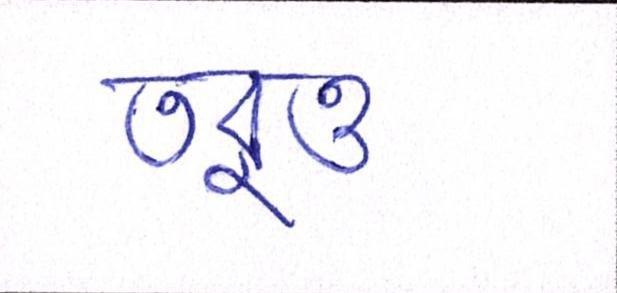 তবুও